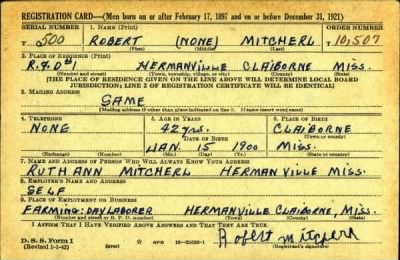 REGISTRATION CARD—(Men born on or after February 17, 1897 and on or before December 31, 1921)
SERIAL NUMBER 1. NAME (Print) ORDER NUMBER
T 500 ROBERT (NONE) MITCHERL 10,507
(First) (Middle) (Last)
2. PLACE OF RESIDENCE (Print)
R.F.D #1 HERMANVILLE CLAIBORNE MISS.
(Number and street) (Town, township, village, or city) (County) (State)
[THE PLACE OF RESIDENCE GIVEN ON THE LINE ABOVE WILL DETERMINE LOCAL BOARD
JURISDICTION; LINE 2 OF REGISTRATION CERTIFICATE WILL BE IDENTICAL]
3. MAILING ADDRESS
SAME
[Mailing address if other than place indicated on line 2. If same insert word same]
4. TELEPHONE 5. AGE IN YEARS 6. PLACE OF BIRTH
NONE 42 yrs. CLAIBORNE
DATE OF BIRTH (Town or county)
JAN. 15 1900 MISS.
(Exchange) (Number) (Mo.) (Day) (Yr.) (State or country)
7. NAME AND ADDRESS OF PERSON WHO WILL ALWAYS KNOW YOUR ADDRESS
RUTH ANN MITCHERL HERMANVILLE MISS.
8. EMPLOYER'S NAME AND ADDRESS
SELF
9. PLACE OF EMPLOYMENT OR BUSINESS
FARMING: DAY LABORER HERMANVILLE CLAIBORNE, MISS.
(Number and street or R. F. D. number) (Town) (County) (State)
I AFFIRM THAT I HAVE VERIFIED ABOVE ANSWERS AND THAT THEY ARE TRUE.
D. S. S. Form 1
(Revised 1-1-42) (over) GPO Robert Mitcherl
(Registrant's signature)